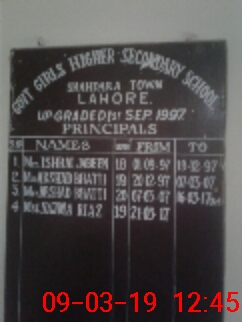 GOVT GIRLS HIGHER SECONDARY SCHOOL
SHAHDARA TOWN
LAHORE.
UPGRADED 1st SEP. 1997
PRINCIPALS
NAMES FROM TO
1 Mrs. ISHRAT JABEEN 18 01-09-97 19-12-97
2 ARSHAD BHATTI 20-12-97 07-03-07
3 ARSHAD BHATTI 20 07-03-07
4 NAZMA RIAZ 19 21-03-17
09-03-19 12:45